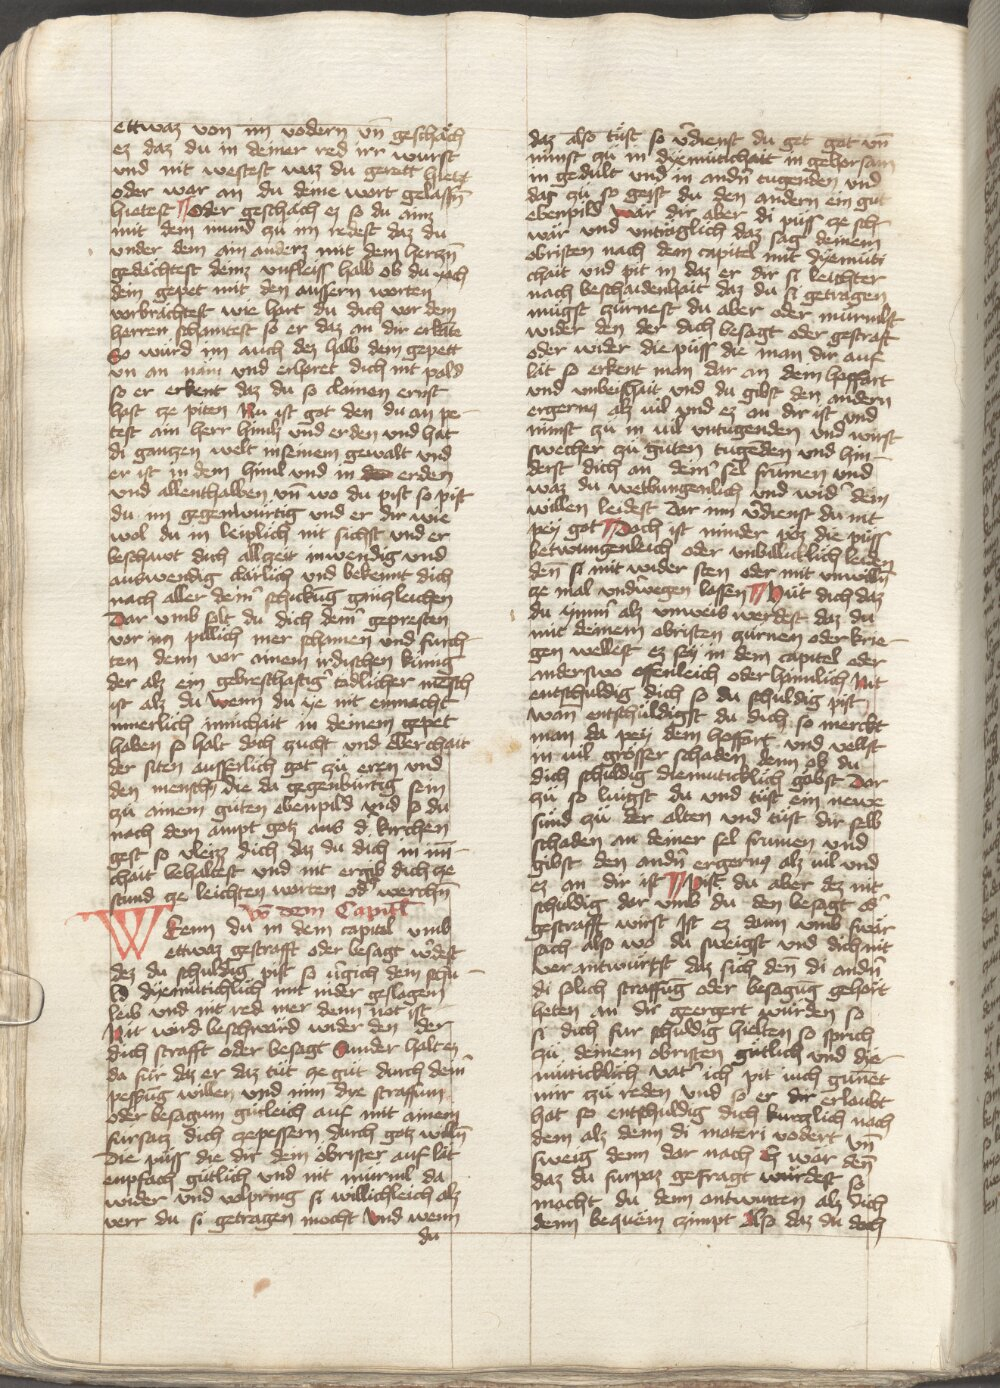 ettwaz von im vodern vn̄ geschäch
ez daz du in deiner red irr wurst
und nit westest waz du gerett hietst
oder war an du deine wort gelassn̄
hietest Oder geschäch ez so du ainz
mit dem mund zu im redest daz du
under dem ain anderz mit dem herczn̄
gedächtest deinz unfleiss halb ob du
dein gepet mit den aussern worten
vorbrächtest wie hart du dich vor dem
herren schamtest so er daz an dir erkāte
So würd im auch dez halb dem gepett
un an näm und erhöret dich nit pald
so er erkent daz du so clainen ernst
hast cze piten Nu ist got den du an pe-
test ain herr himlz und erden und hat
di ganczen welt in seinem gewalt und
er ist in dem himl und in erden
und allenthalben vn̄ wo du pist so pist
du im gegenwürtig und er dir wie
wol du in leiplich nit sichst und er
beschawt dich allzeit inwendig und
auswendig clärlich und bekennt dich
nach aller dein̄ schickūg gänczleichen
Dar umb solt du dich dein̄ gepresten
vor im pillich mer schamen und furch-
ten denn vor ainem irdischen künig
der alz ein gebresthaftiḡ tödlicher mēsch
ist alz du Wenn du ye nit einnächt
innerlich innichait in deinem gepet
haben so halt doch zucht und
der siten ausserlich got zu eren und
den menschn̄ die da gegenbürtig sein
zu ainem güten ebenpild und so du
nach dem ampt gotz aus d̄ kirchen
gest so vleizz dich daz du dich in inni-
chait behaltest und nit ergib dich ze
stund ze leichten worten od̄ werchn̄
Vō dem Capitl
Wenn du in dem capitel umb
ettwaz gestrafft oder besagt w̄dest
dez du schuldig pist so v̄gich dem schu-
ld dyemütichlich mit nider geslagem
leib und nit red mer denn not ist
Nit wird beschwärd wider den der
dich strafft oder besagt Sunder halt ez
da für daz er daz tüt ze güt durch dein̄
pessrūg willen und nim die straffum
oder besagum gütleich auf mit ainem
fursatz dich ze pessern durch gotz willn̄
Die püss die dir dem obrister auf lät
enpfach gütlich und nit murml da
wider und volpring si willichleich alz
verr du si getragen macht Und wenn
du
daz also tüst so v̄dienst du get got vn̄
nimst zu in dyemütichait in gehorsam
in gedult und in andn̄ tugenden und
dar zu so geist du den andern ein gut
ebenpild Wär dir aber di püss ze sch
wär und unträglich daz sag deinem
obristen nach dem capitel mit dyemüti
chait und pit in daz er dir si leichter
nach beschaidenhait daz du si getragen
mügst zürnest du aber oder murmlst
wider den der dich besagt oder gestraft
oder wider die püss die man dir auf
lät so erkent man dar an dein hoffart
und unbeschait und du gibst den andern
ergernuz alz uil und ez an dir ist und
nimst zu in uil untugenden und wirst
swecher zu güten tugenden und hin-
derst dich an dein̄ sel frumen und
waz du uetbungenlich und wid̄ dein
willen leidest Dar inn v̄dienst du nit
pey got Doch ist minder pöz die püss
betwungenleich oder unbillicklich leiden
den̄ si mit wider sten oder mit unwilln̄
ze mal underwegen lassen Hüt dich daz
du ymm̄ alz unweis werdest daz du
mit deinem obristen zürnen oder krie-
gen wellest ez sey in dem capitel oder
anderswo offenleich oder haimlich Nit
entschuldig dich so du schuldig pist
wan entschuldigst du dich so merckt
man da pey dein hoffart und vellst
in uil grösser schaden denn ob du
dich schuldig diemüticklich gäbst Dar
zu so lüigst du und tüst ein newe
sünd zu der alten und tüst dir selb
schaden an deiner sel frumen und
gibst den andn̄ ergernuz alz uil und
ez an dir ist Pist du aber dez nit
schuldig dar umb du den besagt od̄
gestrafft wirst Ist ez dann umb swär
sach also wo du sweigst und dich nit
verantwürtst daz sich den̄ di andn̄
di solich straffūg oder besagūg gehört
heten an dir geergert würden so
si dich fur schuldig hielten so sprich
zu deinem obristen gütlich und dye-
müticklich vat̄ ich pit iuch gunnet
mir zu reden und so er dir erlaubt
hat so entschuldig dich kurczlich nach
dem alz denn di materi vodert vn̄
sweig denn dar nach Ez wär den̄
daz du furpaz gefragt würdest so
macht du dem antwurten alz dich
denn bequem czimpt Also daz du doch